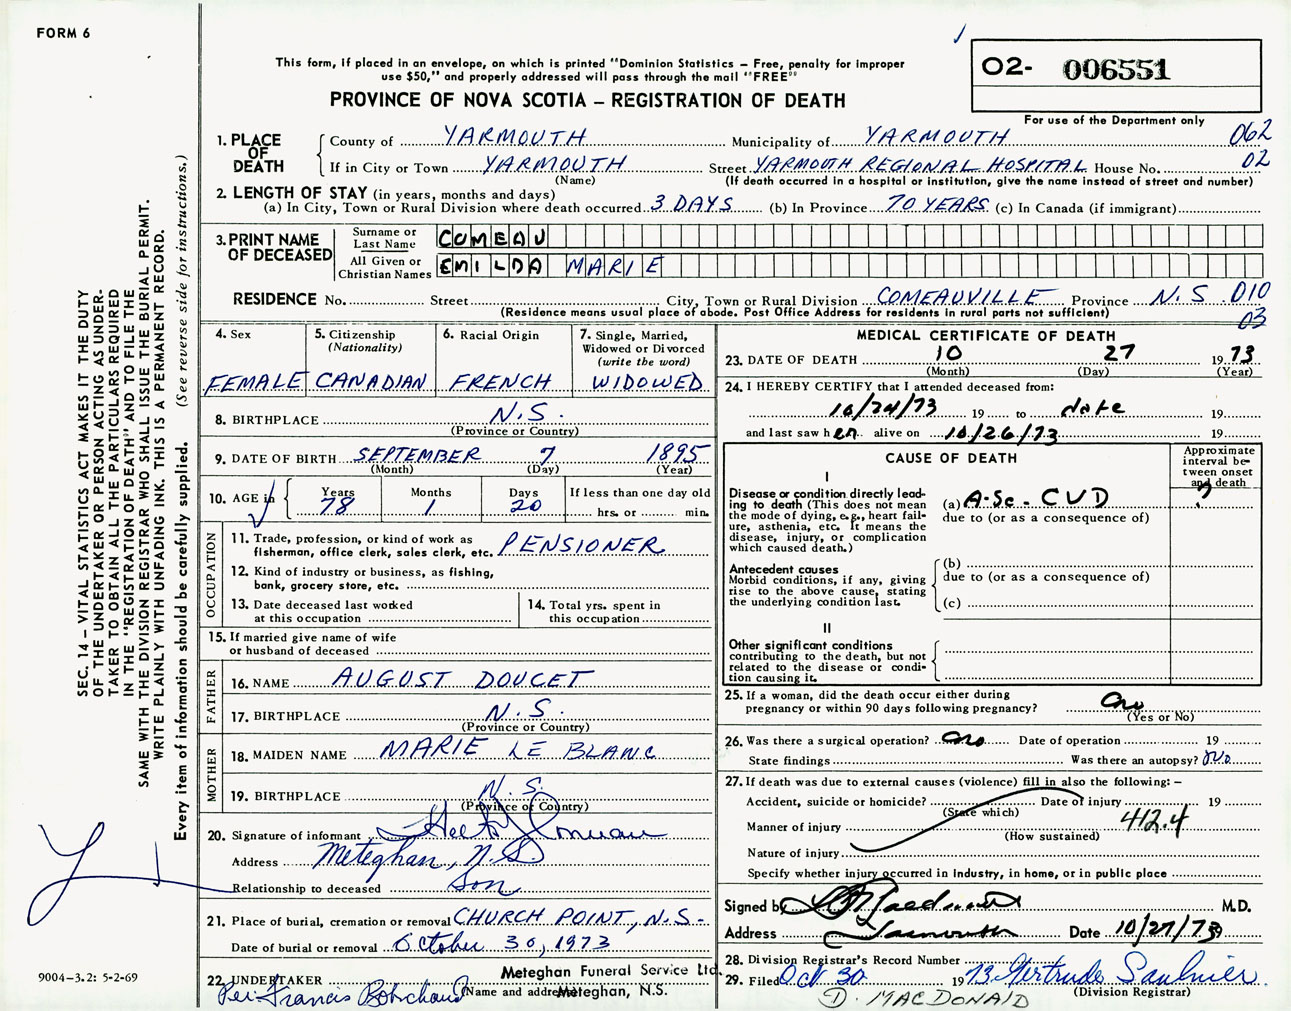 FORM 6
This form, if placed in an envelope, on which is printed "Dominion Statistics – Free, penalty for improper
use $50," and properly addressed will pass through the mail "FREE"
PROVINCE OF NOVA SCOTIA – REGISTRATION OF DEATH
O2- 006551
For use of the Department only
1. PLACE OF DEATH
County of YARMOUTH Municipality of YARMOUTH 062
If in City or Town YARMOUTH Street YARMOUTH REGIONAL HOSPITAL House No. 02
(Name) (If death occurred in a hospital or institution, give the name instead of street and number)
2. LENGTH OF STAY (in years, months and days)
(a) In City, Town or Rural Division where death occurred 3 DAYS (b) In Province 70 YEARS (c) In Canada (if immigrant)
3. PRINT NAME OF DECEASED
Surname or Last Name COMEAU
All Given or Christian Names EMILDA MARIE
RESIDENCE No. Street City, Town or Rural Division COMEAUVILLE Province N.S. 010
(Residence means usual place of abode. Post Office Address for residents in rural parts not sufficient) 03
4. Sex FEMALE
5. Citizenship (Nationality) CANADIAN
6. Racial Origin FRENCH
7. Single, Married, Widowed or Divorced (write the word) WIDOWED
8. BIRTHPLACE N.S.
(Province or Country)
9. DATE OF BIRTH SEPTEMBER 7 1895
(Month) (Day) (Year)
10. AGE in Years 78 Months 1 Days 20 If less than one day old
hrs. or min.
OCCUPATION
11. Trade, profession, or kind of work as
fisherman, office clerk, sales clerk, etc. PENSIONER
12. Kind of industry or business, as fishing,
bank, grocery store, etc.
13. Date deceased last worked
at this occupation
14. Total yrs. spent in
this occupation
15. If married give name of wife
or husband of deceased
FATHER
16. NAME AUGUST DOUCET
17. BIRTHPLACE N.S.
(Province or Country)
MOTHER
18. MAIDEN NAME MARIE LE BLANC
19. BIRTHPLACE N.S.
(Province or Country)
20. Signature of informant
Address Meteghan, N.S.
Relationship to deceased Son
21. Place of burial, cremation or removal CHURCH POINT, N.S.
Date of burial or removal October 30, 1973
22. UNDERTAKER Meteghan Funeral Service Ltd.
Per Francis Robichaud (Name and address) Meteghan, N.S.
MEDICAL CERTIFICATE OF DEATH
23. DATE OF DEATH 10 27 1973
(Month) (Day) (Year)
24. I HEREBY CERTIFY that I attended deceased from:
10/24/73 19 to date 19
and last saw her alive on 10/26/73 19
CAUSE OF DEATH
Approximate interval between onset and death
I
Disease or condition directly leading to death (This does not
mean the mode of dying, e.g., heart failure, asthenia, etc. It means the
disease, injury, or complication
which caused death.)
(a) A-Sc-CVD ?
due to (or as a consequence of)
Antecedent causes
Morbid conditions, if any, giving
rise to the above cause, stating
the underlying condition last.
(b)
due to (or as a consequence of)
(c)
II
Other significant conditions
contributing to the death, but not
related to the disease or condition causing it.
25. If a woman, did the death occur either during
pregnancy or within 90 days following pregnancy? no
(Yes or No)
26. Was there a surgical operation? no Date of operation 19
State findings Was there an autopsy? no
27. If death was due to external causes (violence) fill in also the following: –
Accident, suicide or homicide? Date of injury 19
(State which)
Manner of injury 412.4
(How sustained)
Nature of injury
Specify whether injury occurred in Industry, in home, or in public place
Signed by M.D.
Address Yarmouth Date 10/27/73
28. Division Registrar's Record Number
29. Filed Oct 30 1973 Gertrude Saulnier
(Division Registrar)
D. MACDONALD
SEC. 14 – VITAL STATISTICS ACT MAKES IT THE DUTY
OF THE UNDERTAKER OR PERSON ACTING AS UNDER-
TAKER TO OBTAIN ALL THE PARTICULARS REQUIRED
IN THE "REGISTRATION OF DEATH" AND TO FILE THE
SAME WITH THE DIVISION REGISTRAR WHO SHALL ISSUE THE BURIAL PERMIT.
WRITE PLAINLY WITH UNFADING INK. THIS IS A PERMANENT RECORD.
Every item of information should be carefully supplied. (See reverse side for instructions.)
9004–3.2: 5-2-69